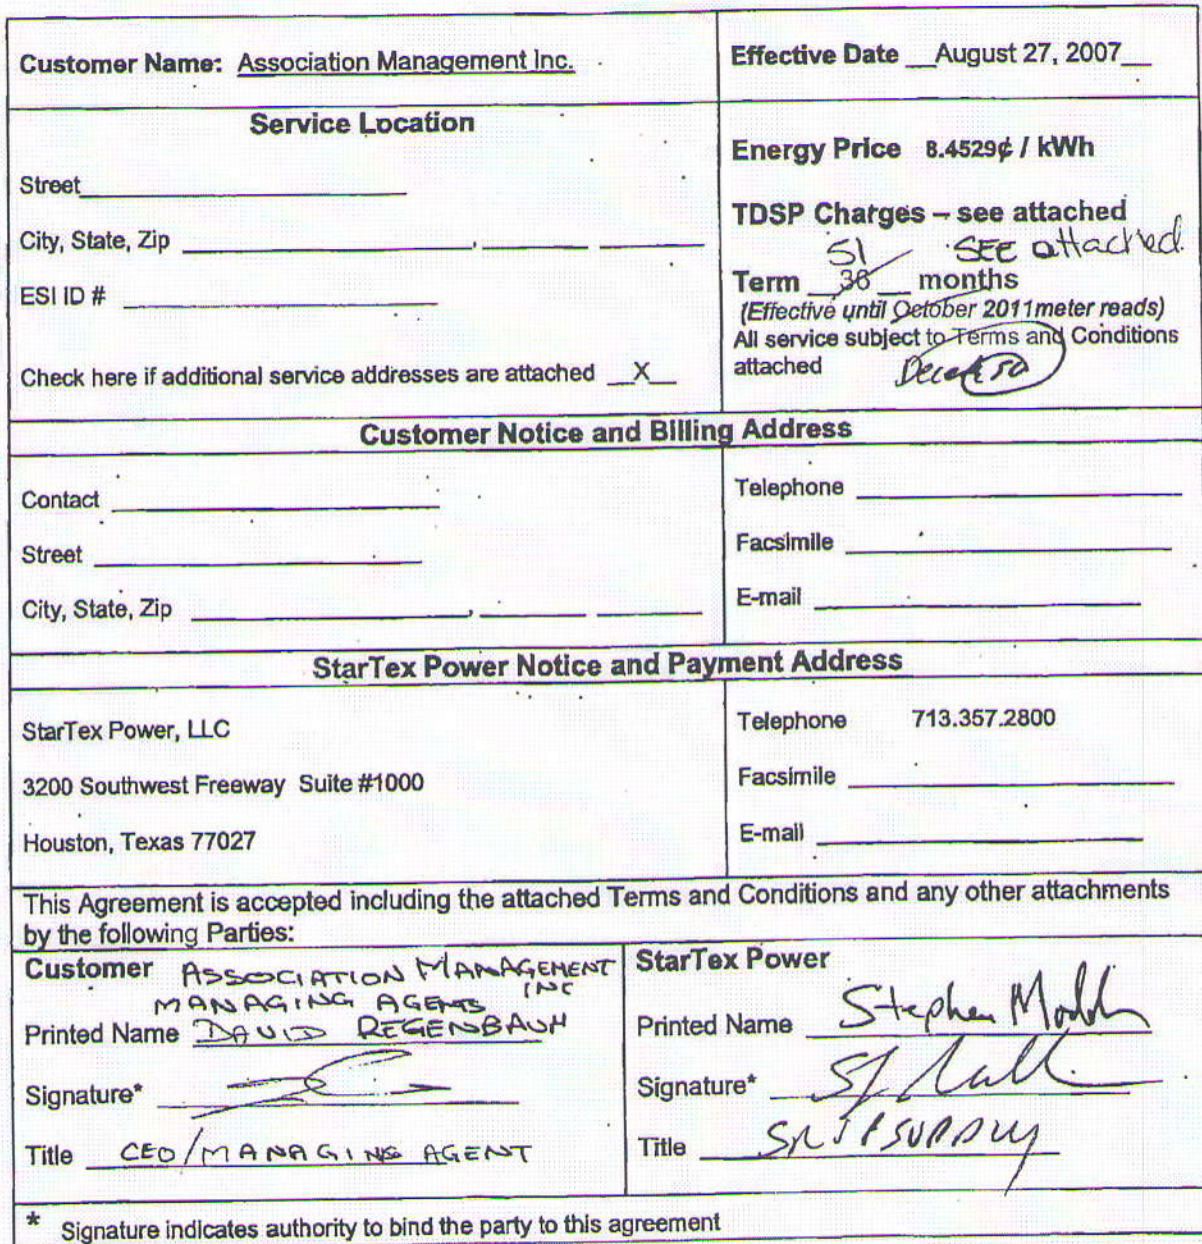 Customer Name: Association Management Inc.
Effective Date __August 27, 2007__
Service Location
Street
City, State, Zip , 
ESI ID #
Check here if additional service addresses are attached __X__
Energy Price 8.4529¢ / kWh
TDSP Charges – see attached
51 SEE attached.
Term 36 months
(Effective until October 2011meter reads)
All service subject to Terms and Conditions
attached
Customer Notice and Billing Address
Contact
Street
City, State, Zip , 
Telephone
Facsimile
E-mail
StarTex Power Notice and Payment Address
StarTex Power, LLC
3200 Southwest Freeway Suite #1000
Houston, Texas 77027
Telephone 713.357.2800
Facsimile
E-mail
This Agreement is accepted including the attached Terms and Conditions and any other attachments
by the following Parties:
Customer ASSOCIATION MANAGEMENT INC
MANAGING AGENTS
Printed Name DAVID REGENBAUM
Signature*
Title CEO/MANAGING AGENT
StarTex Power
Printed Name Stephen
Signature*
Title SR VP SUPPLY
* Signature indicates authority to bind the party to this agreement